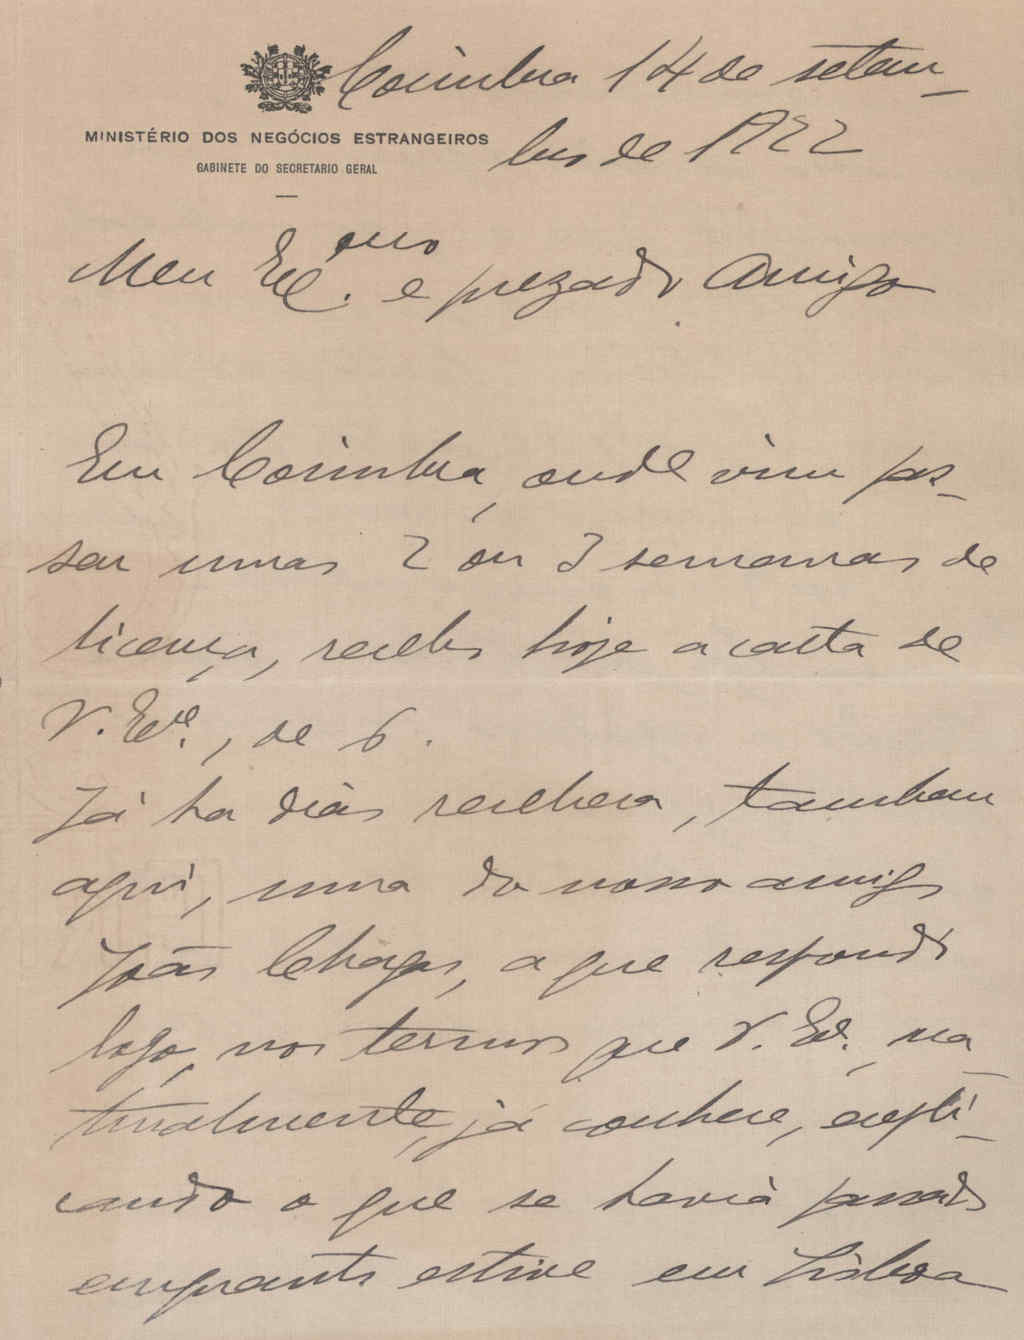 Coimbra 14 de setem-
MINISTÉRIO DOS NEGÓCIOS ESTRANGEIROS
bro de 1922
GABINETE DO SECRETARIO GERAL
Meu Ex.mo e prezado Amigo
Em Coimbra, onde vim pas-
sar umas 2 ou 3 semanas de
licença, recebi hoje a carta de
V. Ex.ª, de 6.
Já ha dias recebera, tambem
aqui, uma do nosso amigo
João Chagas, a que respondi
logo, nos termos que V. Ex.ª, na-
turalmente, já conhece, expli-
cando o que se havia passado
emquanto estive em Lisboa